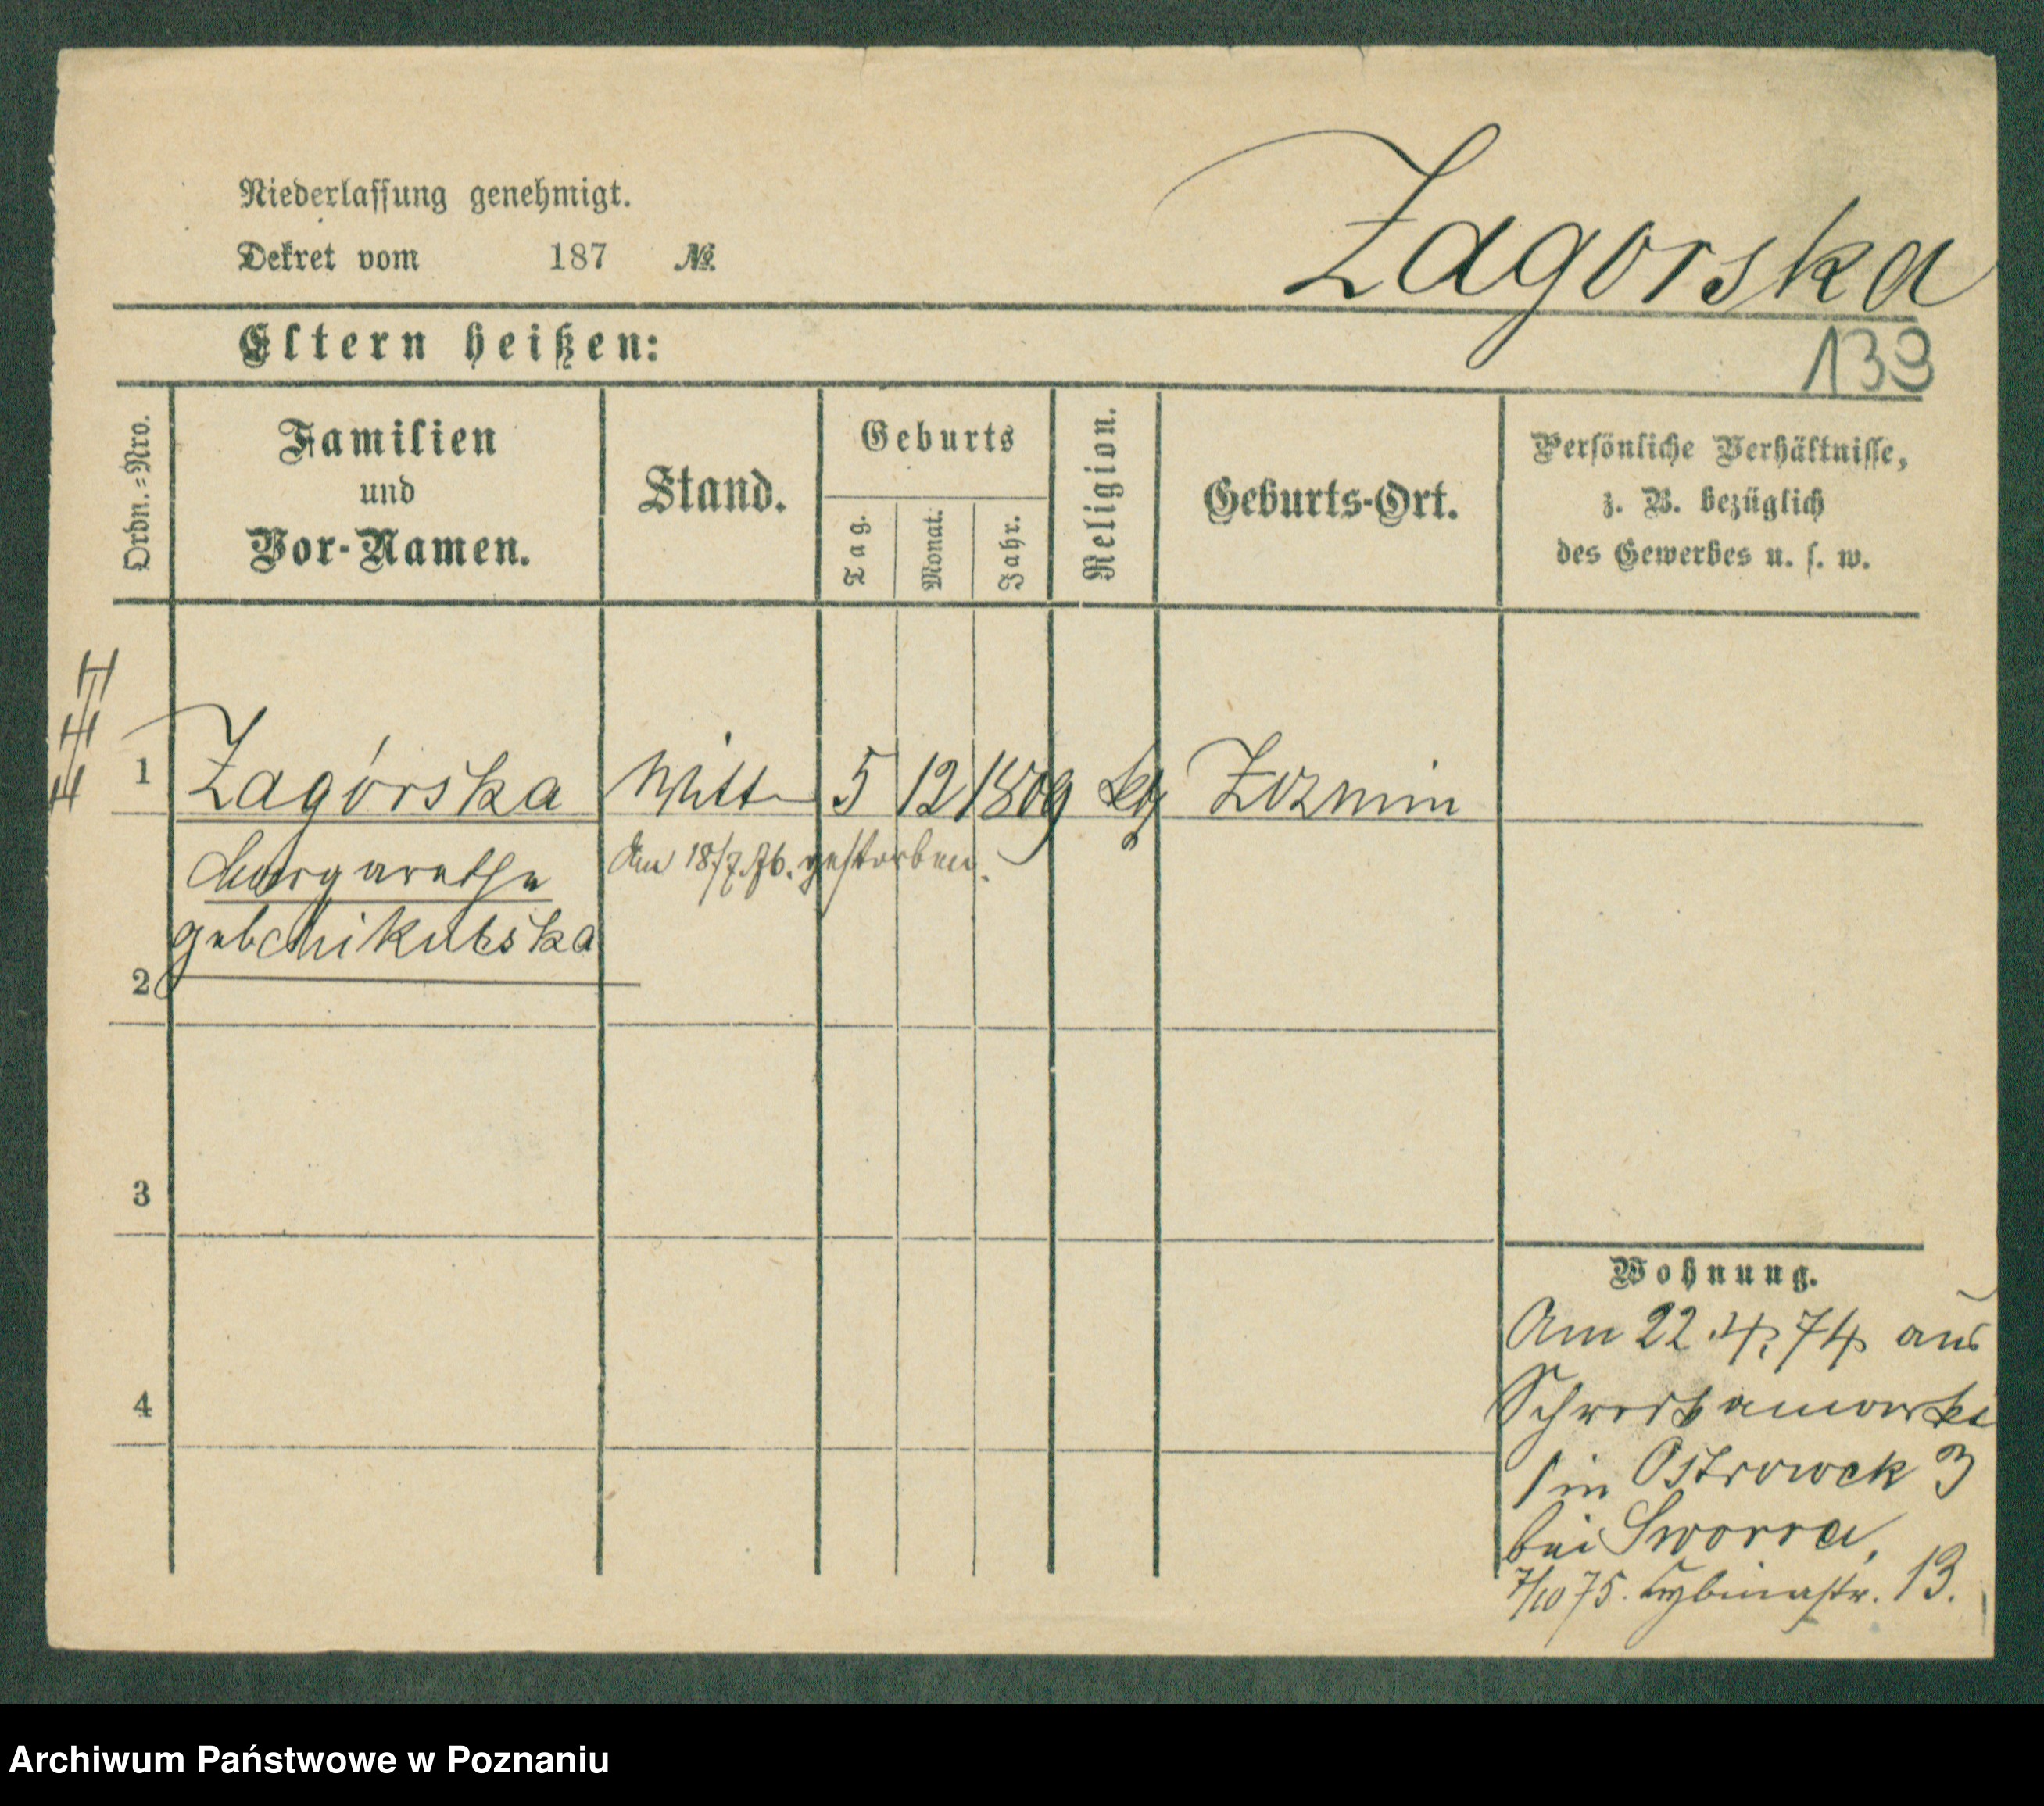 Niederlassung genehmigt.
Dekret vom 187 №
Zagorska
Eltern heißen:
139
Ordn.=Nro.
Familien
und
Vor-Namen.
Stand.
Geburts
Tag.
Monat.
Jahr.
Religion.
Geburts-Ort.
Persönliche Verhältnisse,
z. B. bezüglich
des Gewerbes u. s. w.
1 Zagórska 5 12 1809
Margarethe
Am 18/7.76. gestorben.
geb Mikulska
2
3
4
Wohnung.
Am 22.4.74 aus
in Ostrowek 3
bei Sworra,
7/10 75. Cybinastr. 13.
Archiwum Państwowe w Poznaniu